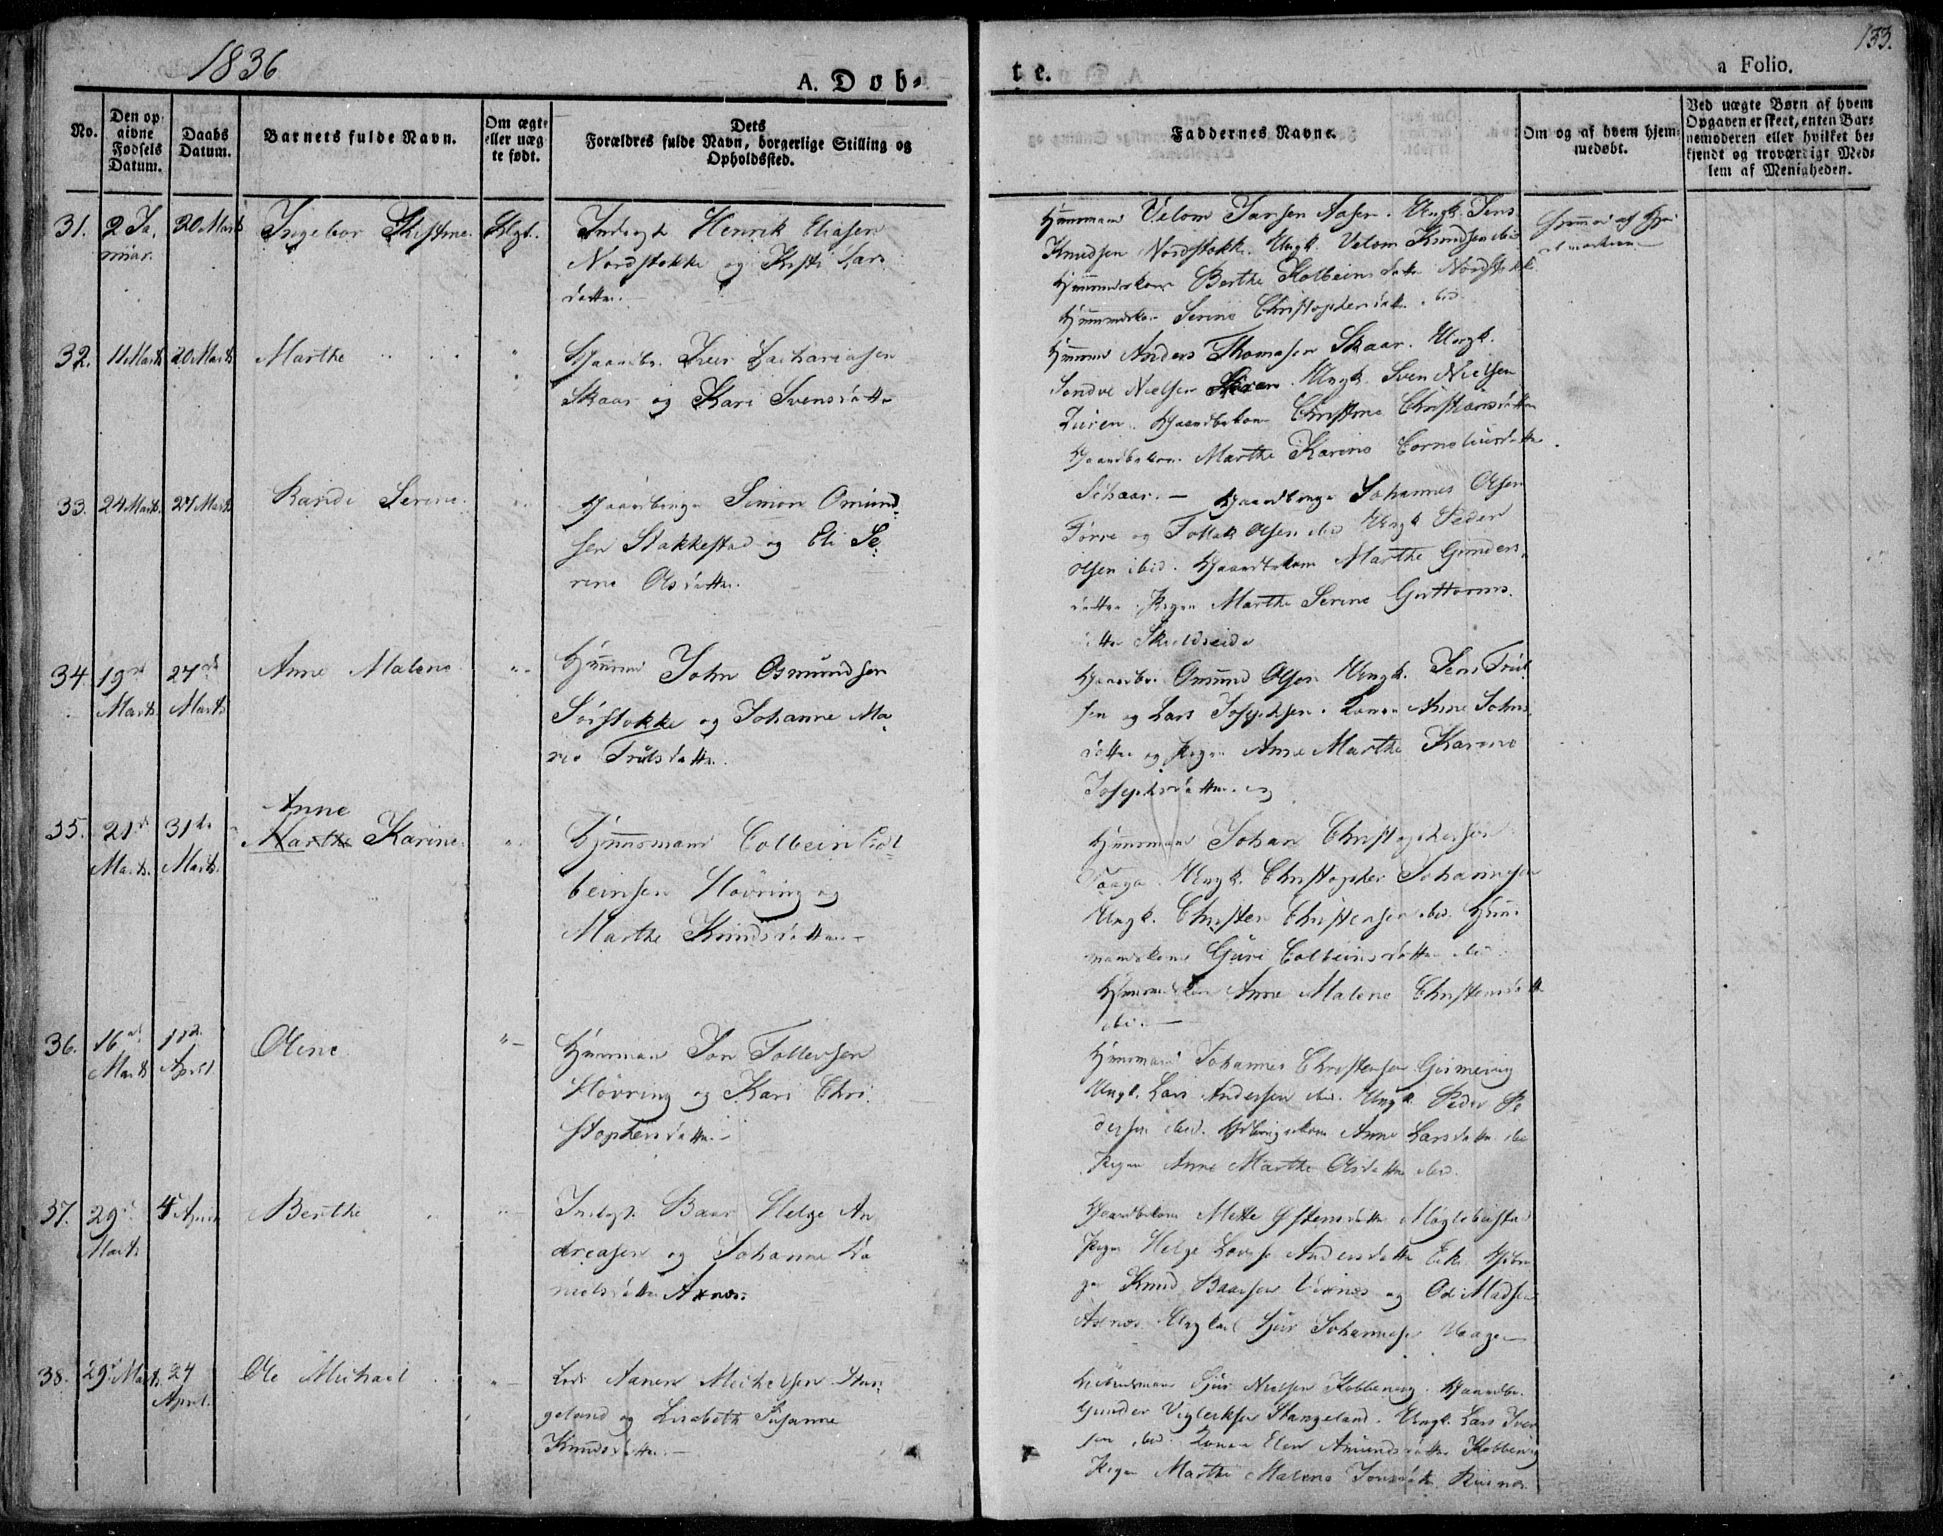 1836
133.
A. Døb-
te.
a Folio.
No.
Den op-
givne
Fødsels
Datum.
Daabs
Datum.
Barnets fulde Navn.
Om ægte
eller uæg-
te født.
Dets
Forældres fulde Navn, borgerlige Stilling og
Opholdssted.
Faddernes Navne.
Om og af hvem hjem-
medøbt.
Ved uægte Børn af hvem
Opgaven er skeet, enten Bar-
nemoderen eller hvilket be-
kjendt og troværdigt Med-
lem af Menigheden.
31.
2 Ja-
nuar.
20 Marts
Ingebor Kistine
Ægt.
Indsgt. Henrik Eliasen
Nordstokke og Kisti Lars
datter.
Huusmand Velom Jansen Aasen. Ungk. Jens
Knudsen Nordstokk. Ungk. Velom Knudsen ibid
Berthe Kolbeinsdatter Nordstokk.
Serine Christophersdatt. ibid
32.
11 Marts
20 Marts
Marthe
Gaardbr. Iver Zachariasen
Skaar og Kari Svensdatter
Anders Thomasen Skaar. Ungk.
Sondve Nielsen. Ungk. Sven Nielsen
Christine Christiansdatter
Marthe Karine Corneliusdatter
Schaar.
33.
24 Marts
27 Marts
Rande Serine
Gaardbruger Simon Omund-
sen Stakkestad og Eli Se-
rine Olsdatter.
Gaardbruger Johannes Olsen
Førre og Tollak Olsen ibid Ungk Peder
Olsen ibid. Marthe Gunders-
datter. Pigen Marthe Serine Guttorms-
datter Skeldseide
34.
19de
Marts
27de
Marts
Anne Malene
Huusmand John Osmundsen
Sørstokke og Johanne Ma-
rie Trulsdatter.
Gaardbr. Omund Olsen Ungk. Jens Trul-
sen og Lars Josephsen. Konen Anne Johns-
datter og Pigen Anne Marthe Karine
Josephsdatter.
35.
21de
Marts.
31te
Marts.
Anne
Marthe Karine
Huusmand Colbein Col-
beinsen Høvring og
Marthe Knudsdatter
Huusmand Johan Christophersen
Vaage. Ungk. Christopher Johannesen
Ungk. Christen Christensen ibid. Huus-
mandskone Guri Colbeinsdatter ibid
Anne Malene Christensdatter
ibid.
36.
16de
Marts
1ste
April
Oline
Huusmand Jon Tollevsen
Høvring og Kari Chri-
stophersdatter
Huusmand Johannes Christensen Gismervig
Ungk. Lars Andersen ibid. Ungk. Peder Pe-
dersen ibid. Anne Larsdatter ibid
Pigen Anne Marthe Olsdatter ibid.
37.
29de
Marts
4 April
Berthe
Indsgt. Baar Helge An-
dreasen og Johanne Da-
nielsdatter Axnæs.
Mette Ystensdatter Møglebustad
Pigen Helge Lovise Andersdatter Eike
Knud Baarsen Visnes og Ole Madsen
Axnæs. Ungkarl Sjur Johannesen Vaage
38.
29de Marts.
24
April.
Ole Michael
Aanen Michelsen Stan-
geland og Lisebeth Susanne
Knudsdatter.
Sjur Nielsen Kobbervig. Gaardbr.
Gunder Viglecksen Stangeland. Ungk. Lars Iver-
sen ibid. Konen Elen Amundsdatter Kobbervig
Pigen Marthe Malene Jonsdatter Risnes